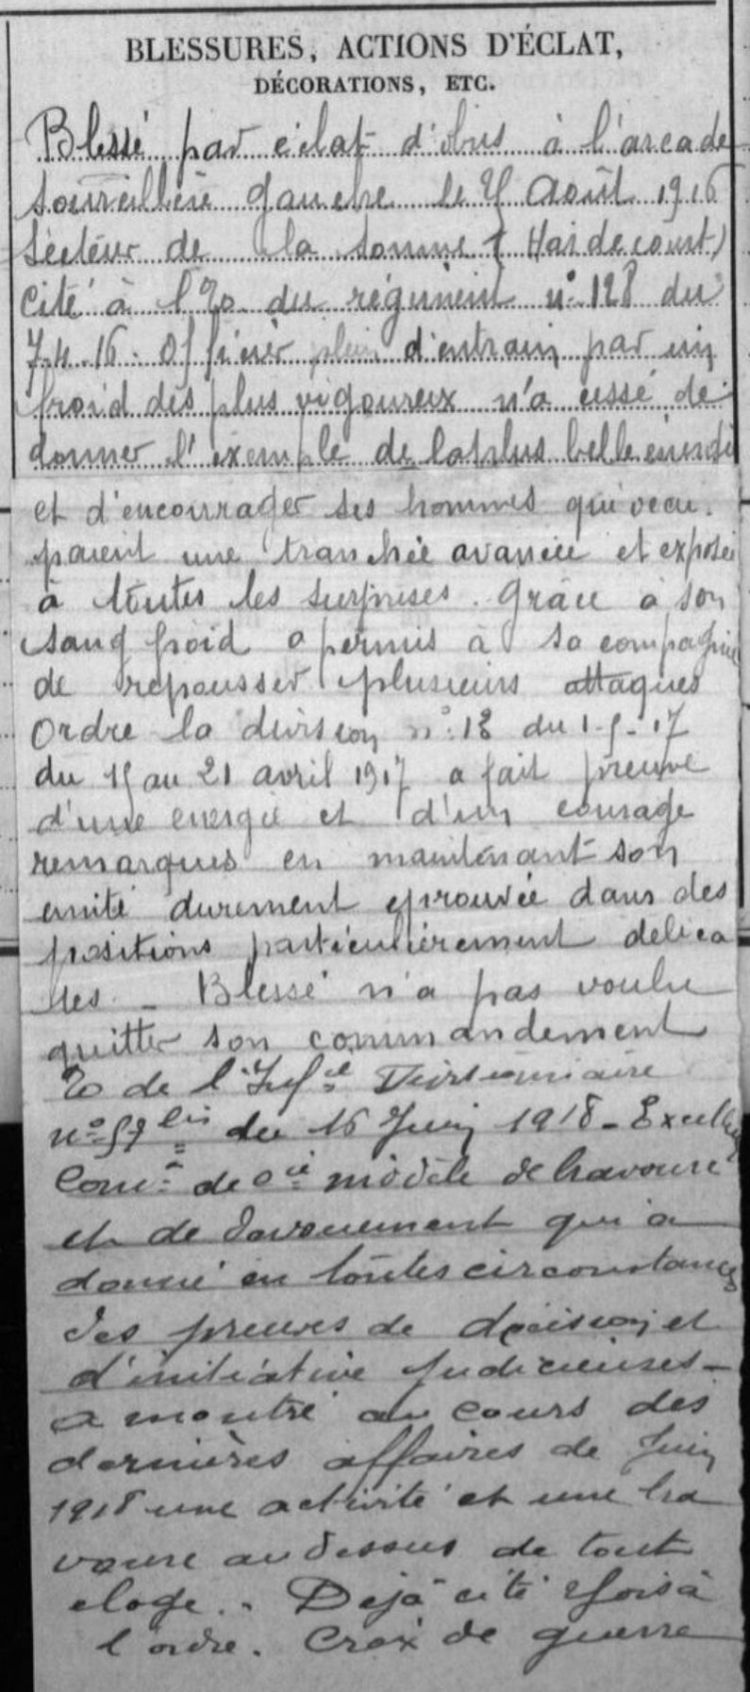 BLESSURES, ACTIONS D'ÉCLAT,
DÉCORATIONS, ETC.
Blessé par éclat d'obus à l'arcade
sourcillère gauche le Août 1916
Secteur de la Somme (Hardecourt)
Cité à l'% du régiment n° 128 du
7-4-16. Officier plein d'entrain par un
froid des plus vigoureux n'a cessé de
donner l'exemple de la plus belle
et d'encourager ses hommes qui occu-
paient une tranchée avancée et exposée
à toutes les surprises. Grâce à son
sang froid a permis à sa compagnie
de repousser plusieurs attaques
Ordre la division n° 18 du 1-5-17
du au 21 avril 1917 a fait preuve
d'une energie et d'un courage
remarqués en maintenant son
unité durement eprouvée dans des
positions particulièrement delica
tes - Blessé n'a pas voulu
quitter son commandement
% de l'Inf^ie Divisionnaire
n° 57 bis du 16 Juin 1918 - Excellent
Com^t de C^ie modèle de bravoure
et de devouement qui a
donné en toutes circonstances
des preuves de décision et
d'initiative judicieuses -
a montré au cours des
dernières affaires de Juin
1918 une activité et une bra
voure au dessus de tout
eloge. - Déjà cité fois à
l'ordre. Croix de guerre